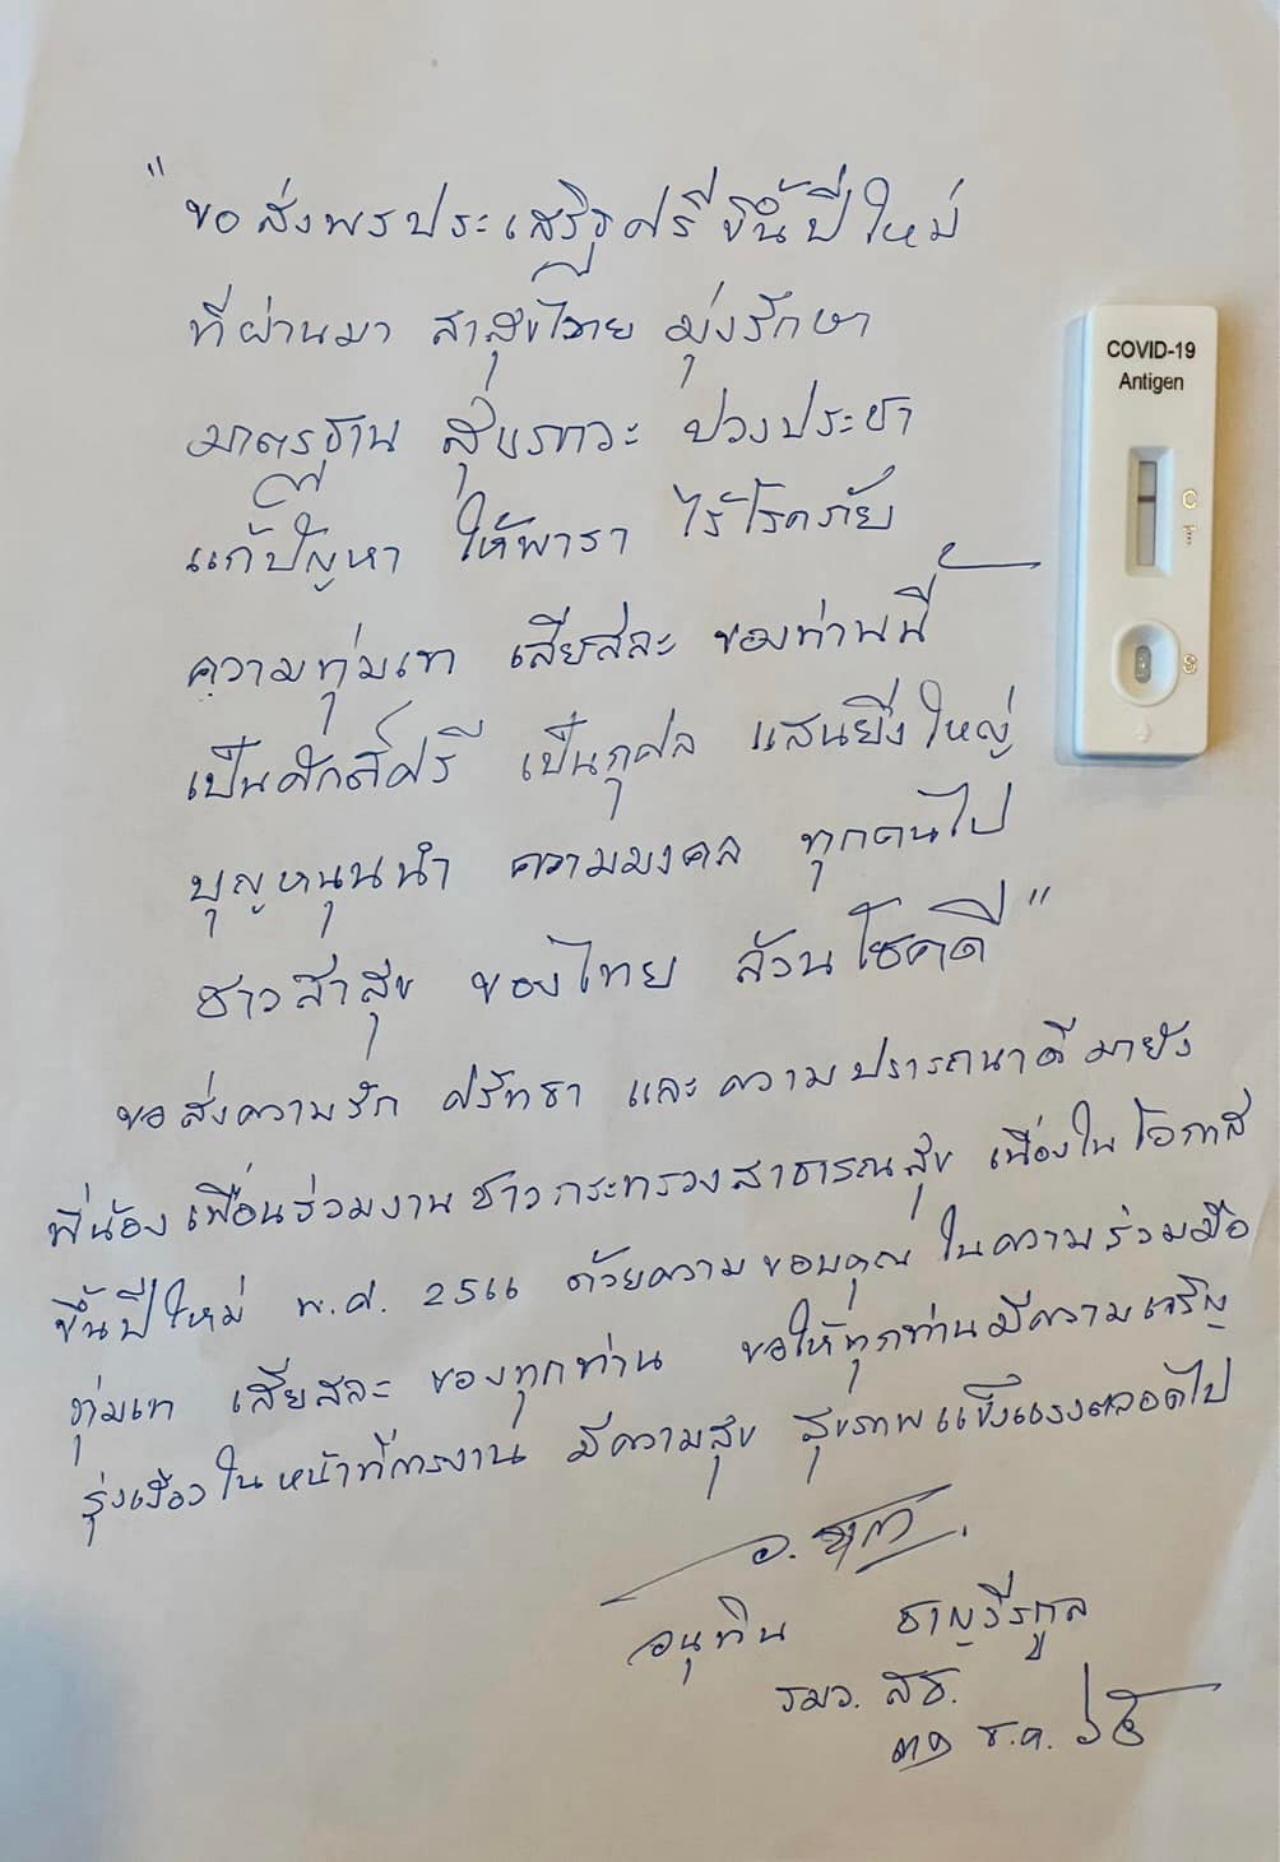 "ขอส่งพรประเสริฐศรีขึ้นปีใหม่
ที่ผ่านมา สาสุขไทย มุ่งรักษา
มาตรฐาน สุขภาวะ ปวงประชา
แก้ปัญหา ให้พารา ไร้โรคภัย
ความทุ่มเท เสียสละ ของท่านนี้
เป็นศักดิ์ศรี เป็นกุศล แสนยิ่งใหญ่
บุญหนุนนำ ความมงคล ทุกคนไป
ชาวสาสุข ของไทย ล้วนโชคดี"
ขอส่งความรัก ศรัทธา และความปรารถนาดี มายัง
พี่น้อง เพื่อนร่วมงาน ชาวกระทรวงสาธารณสุข เนื่องในโอกาส
ขึ้นปีใหม่ พ.ศ. 2566 ด้วยความขอบคุณ ในความร่วมมือ
ทุ่มเท เสียสละ ของทุกท่าน ขอให้ทุกท่านมีความเจริญ
รุ่งเรืองในหน้าที่การงาน มีความสุข สุขภาพแข็งแรงตลอดไป
อนุทิน ชาญวีรกูล
รมว. สธ.
๓๑ ธ.ค. ๖๕
COVID-19
Antigen
C
T
S